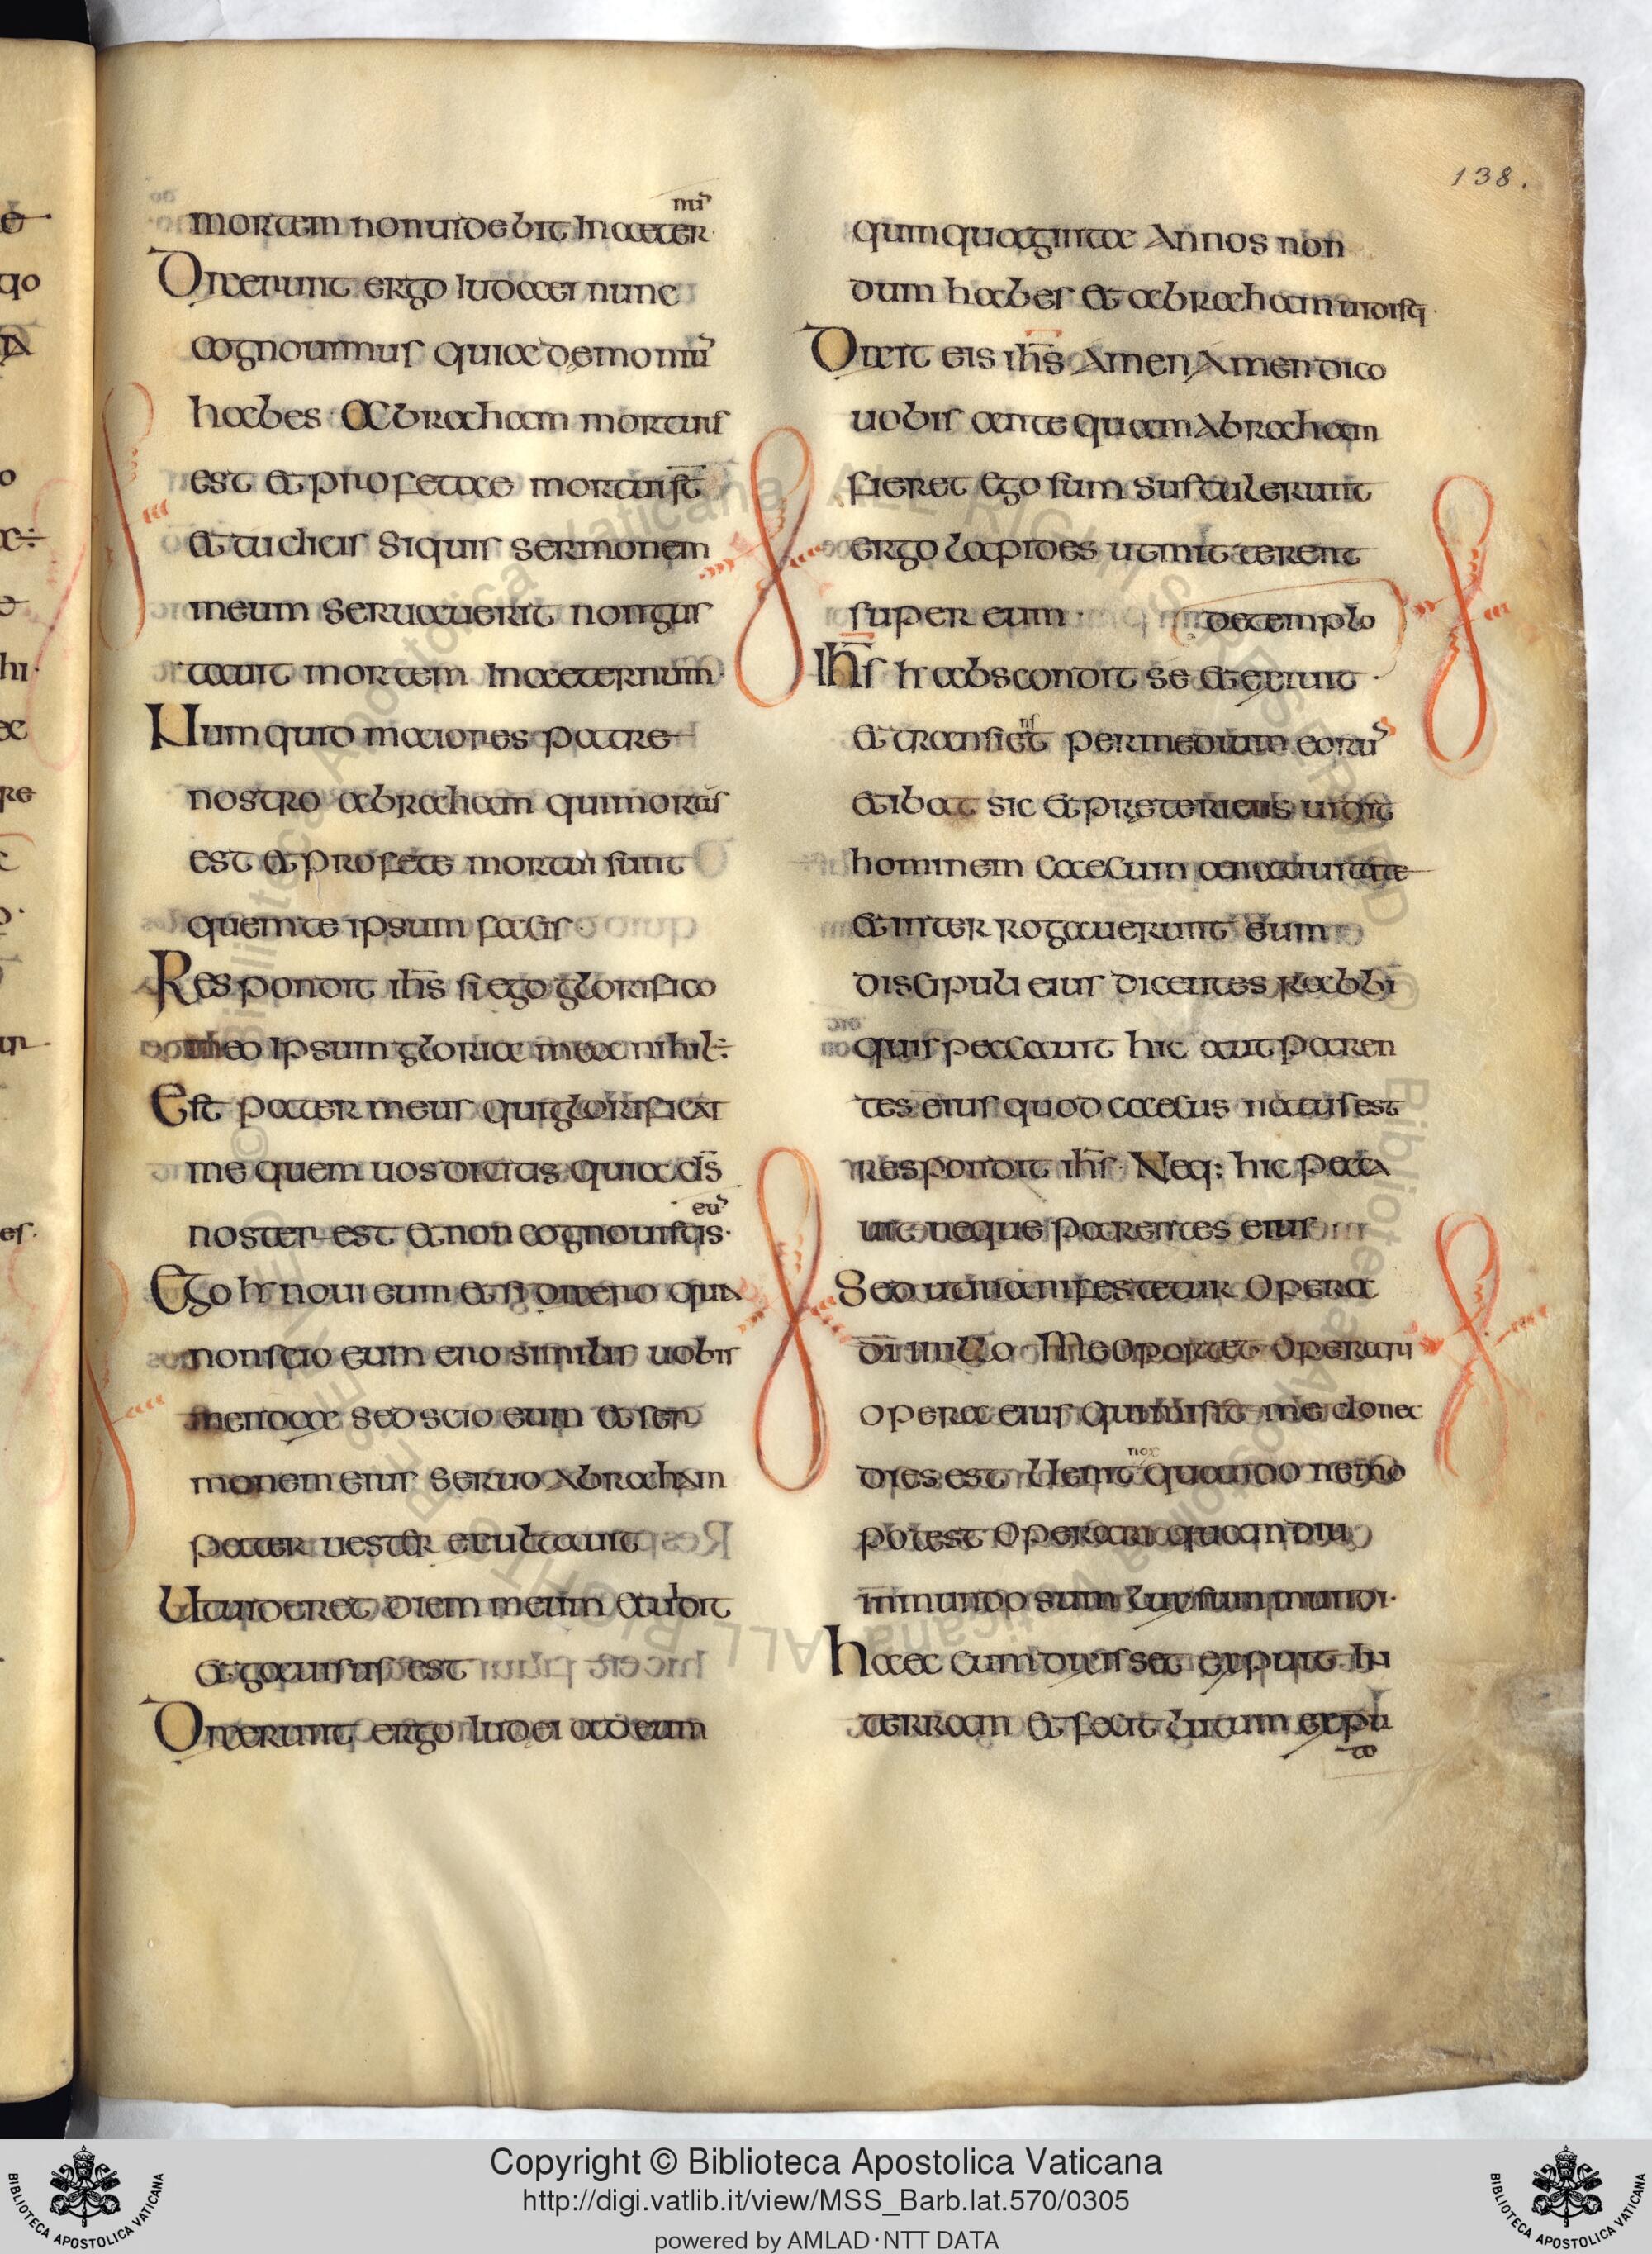 138.
mortem non uidebit In aeter
nū
Dixerunt ergo Iudaei nunc
cognouimus quia demoniū
habes Abraham mortuus
est et profetae mortui st̄
et tu dicis Siquis sermonem
meum seruauerit non gus
tauit mortem In aeternum
Numquid maior es patre
nostro abraham qui mortuus
est et profete mortui sunt
quem te ipsum facis ·
Respondit ih̅s si ego glorifico
me Ipsum gloria mea nihil ÷
Est pater meus qui glorificat
me quem uos dicitis quia ds̄
noster est et non cognouistis ·
eū
Ego hr noui eum et si dixero quia
non scio eum ero similis uobis
mendax sed scio eum et ser
monem eius seruo Abraham
pater uester exultauit
Ut uideret diem meum et uidit
et gauisus est
Dixerunt ergo Iudei ad eum
quinquaginta Annos non
dum habes et abraham uidisti
Dixit eis ih̅s Amen Amen dico
uobis ante quam Abraham
fieret Ego sum Sustulerunt
ergo lapides ut mitterent
super eum ·
de templo
Ih̅s hr abscondit se et exiuit ·
et transiens per medium eorū
et ibat sic et preteriens uidit
hominem caecum a natiuitate
et inter rogauerunt eum
discipuli eius dicentes Rabbi
quis peccauit hic aut paren
tes eius quod caecus natus est
Respondit ih̅s · Neq: hic pecca
uit neque parentes eius
Sed ut manifestetur Opera
dī in illo · Me oportet Operari
opera eius qui misit me donec
dies est Uenit nox quando nemo
potest Operari quamdiu
in mundo sum lux sum mundi ·
haec cum dixisset expuit In
terram et fecit lutum ex spu
to
Copyright © Biblioteca Apostolica Vaticana
http://digi.vatlib.it/view/MSS_Barb.lat.570/0305
powered by AMLAD·NTT DATA